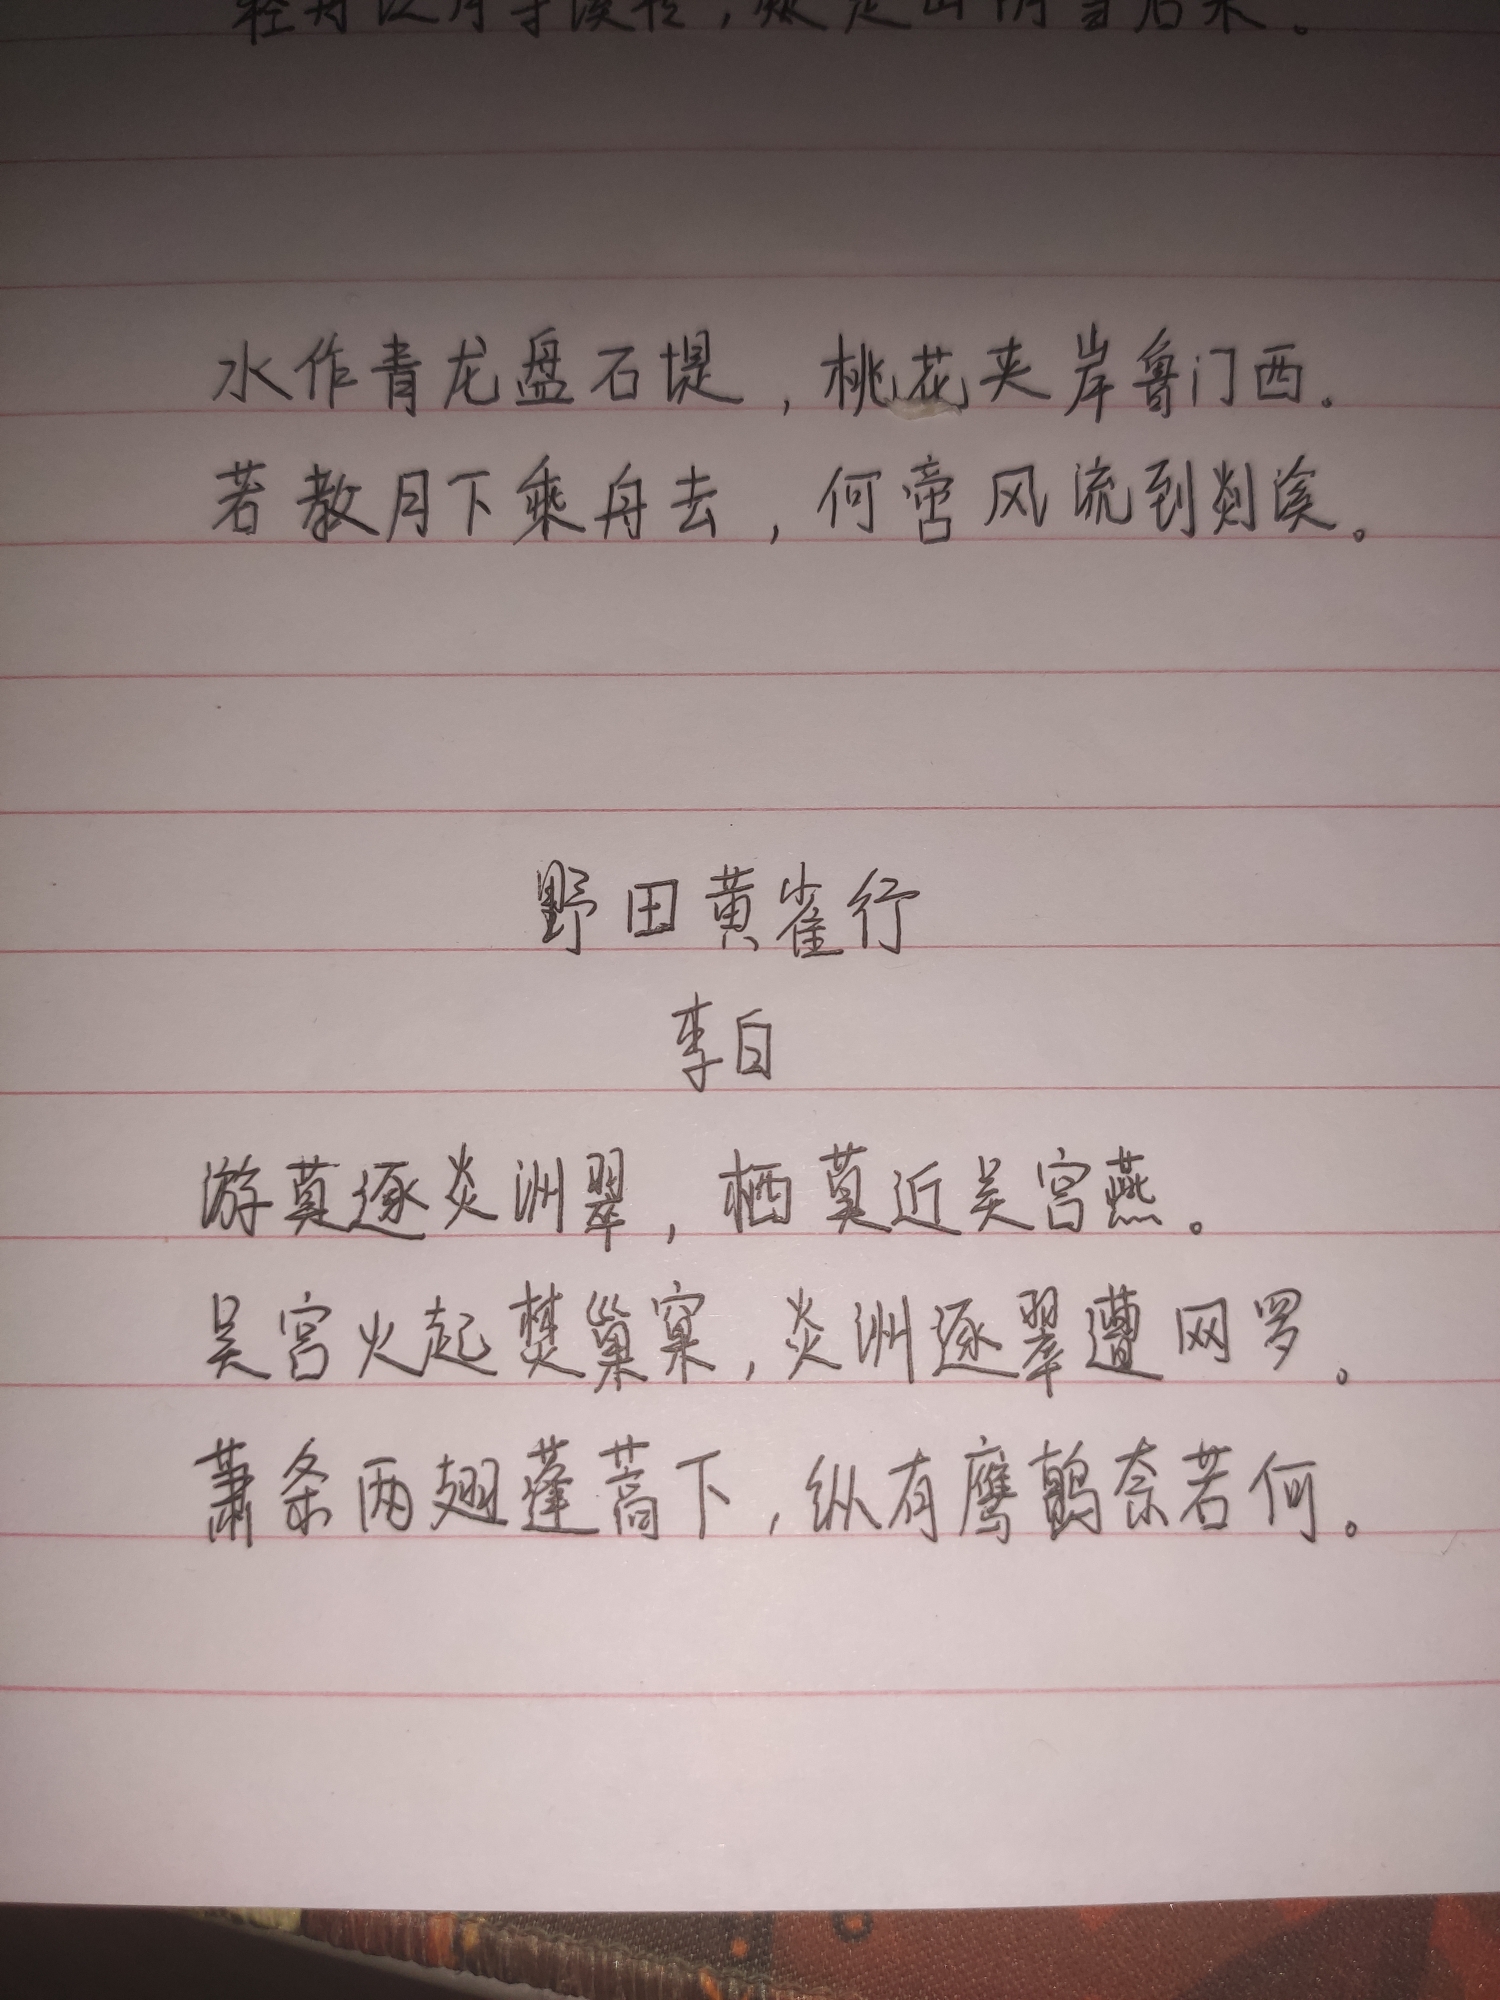 轻舟泛月寻溪转，疑是山阴雪后来。
水作青龙盘石堤，桃花夹岸鲁门西。
若教月下乘舟去，何啻风流到剡溪。
野田黄雀行
李白
游莫逐炎洲翠，栖莫近吴宫燕。
吴宫火起焚巢窠，炎洲逐翠遭网罗。
萧条两翅蓬蒿下，纵有鹰鹯奈若何。